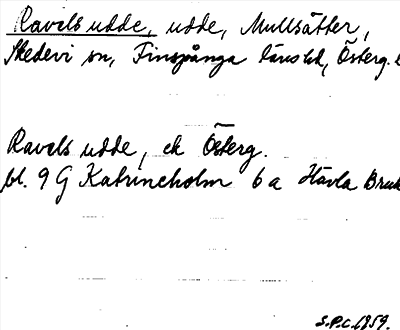 Ravels udde, udde, Mullsätter,
Skedevi sn, Finspånga länsbd, Österg. l
Ravels udde, ek Österg.
bl. 9 G Katrineholm 6 a Hävla Bruk
S.P.C. 1959.